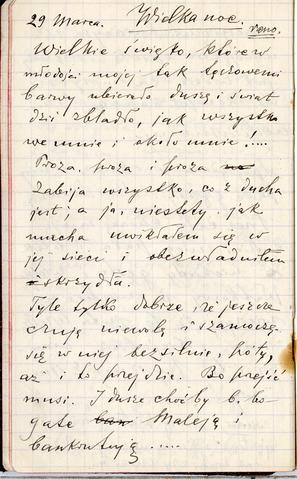 29 Marca. Wielkanoc.
Wielkie święto, które w
młodości mojej tak tęczowemi
barwy ubierało duszę i świat
dziś zbladło, jak wszystko
we mnie i około mnie!....
Proza, proza i proza
zabija wszystko, co z ducha
jest; a ja, niestety, jak
mucha uwikłałem się w
jej sieci i obezwładniłem
skrzydła.
Tyle tylko dobrze, że jeszcze
czuję niewolę i szamoczę
się w niej bezsilnie, póty,
aż i to przejdzie. Bo przejść
musi. I dusze choćby b. bo-
gate maleją i
bankrutują .....